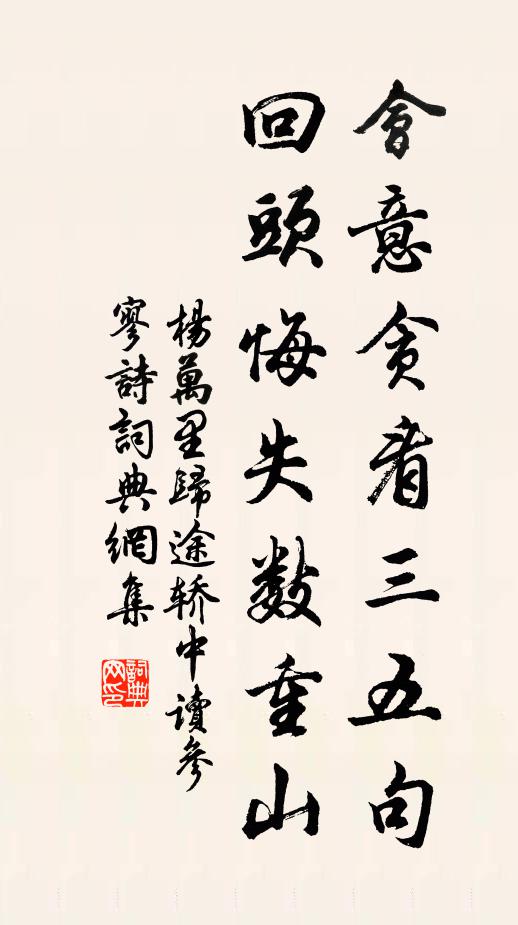 會意貪看三五句
回頭悔失數重山
楊萬里歸途轿中讀參
寥詩詞典網集
詞典网印